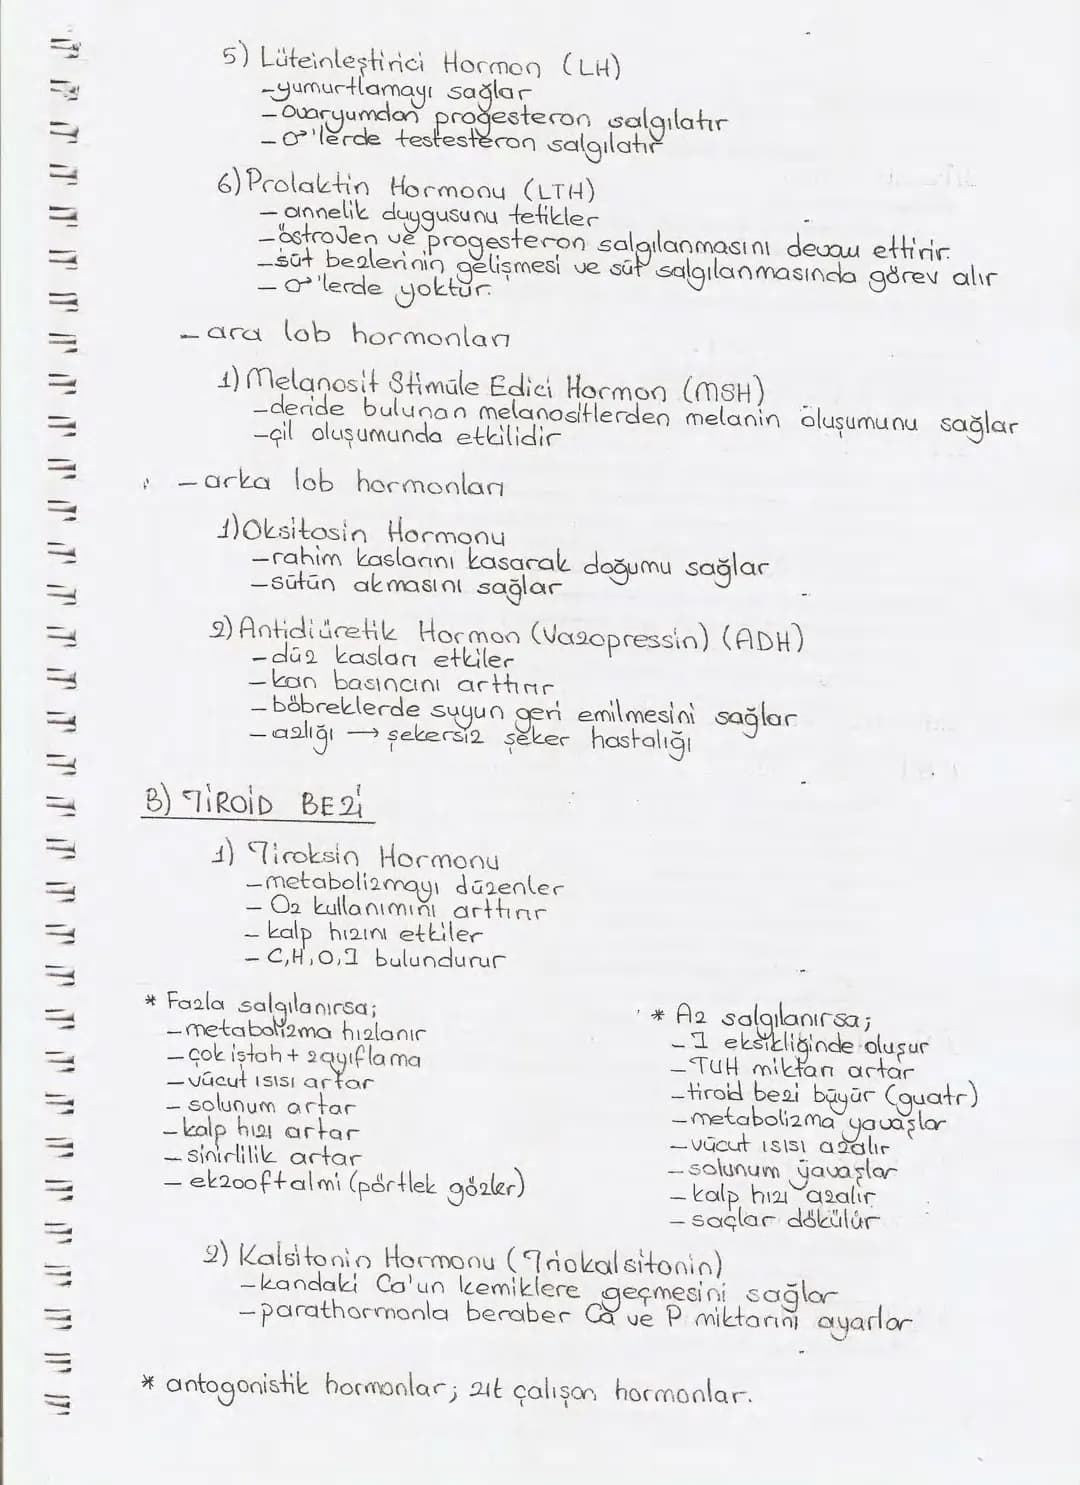 5) Lüteinleştirici Hormon (LH)
-yumurtlamayı sağlar
-Ovaryumdan progesteron salgılatır
-♂'lerde testesteron salgılatır
6) Prolaktin Hormonu (LTH)
- annelik duygusunu tetikler
-östroJen ve progesteron salgılanmasını devam ettirir.
-süt bezlerinin gelişmesi ve süt salgılanmasında görev alır
- ♂'lerde yoktur.
- ara lob hormonları
1) Melanosit Stimüle Edici Hormon (MSH)
-deride bulunan melanositlerden melanin oluşumunu sağlar
-çil oluşumunda etkilidir
- arka lob hormonları
1) Oksitosin Hormonu
-rahim kaslarını kasarak doğumu sağlar
-sütün akmasını sağlar
2) Antidiüretik Hormon (Vazopressin) (ADH)
-düz kasları etkiler
-kan basıncını arttırır
-böbreklerde suyun geri emilmesini sağlar
-azlığı → şekersiz şeker hastalığı
B) TİROİD BEZİ
1) Tiroksin Hormonu
-metabolizmayı düzenler
- O2 kullanımını arttırır
- kalp hızını etkiler
- C,H,O,I bulundurur
* Fazla salgılanırsa;
-metabolizma hızlanır
-çok iştah + zayıflama
-vücut ısısı artar
- solunum artar
-kalp hızı artar
-sinirlilik artar
- ekzooftalmi (pörtlek gözler)
* Az salgılanırsa;
-I eksikliğinde oluşur
-TUH miktarı artar
-tiroid bezi büyür (guatr)
-metabolizma yavaşlar
-vücut ısısı azalır
-solunum yavaşlar
-kalp hızı azalır
-saçlar dökülür
2) Kalsitonin Hormonu (Triokalsitonin)
-kandaki Ca'un kemiklere geçmesini sağlar
-parathormonla beraber Ca ve P miktarını ayarlar
* antogonistik hormonlar; zıt çalışan hormonlar.